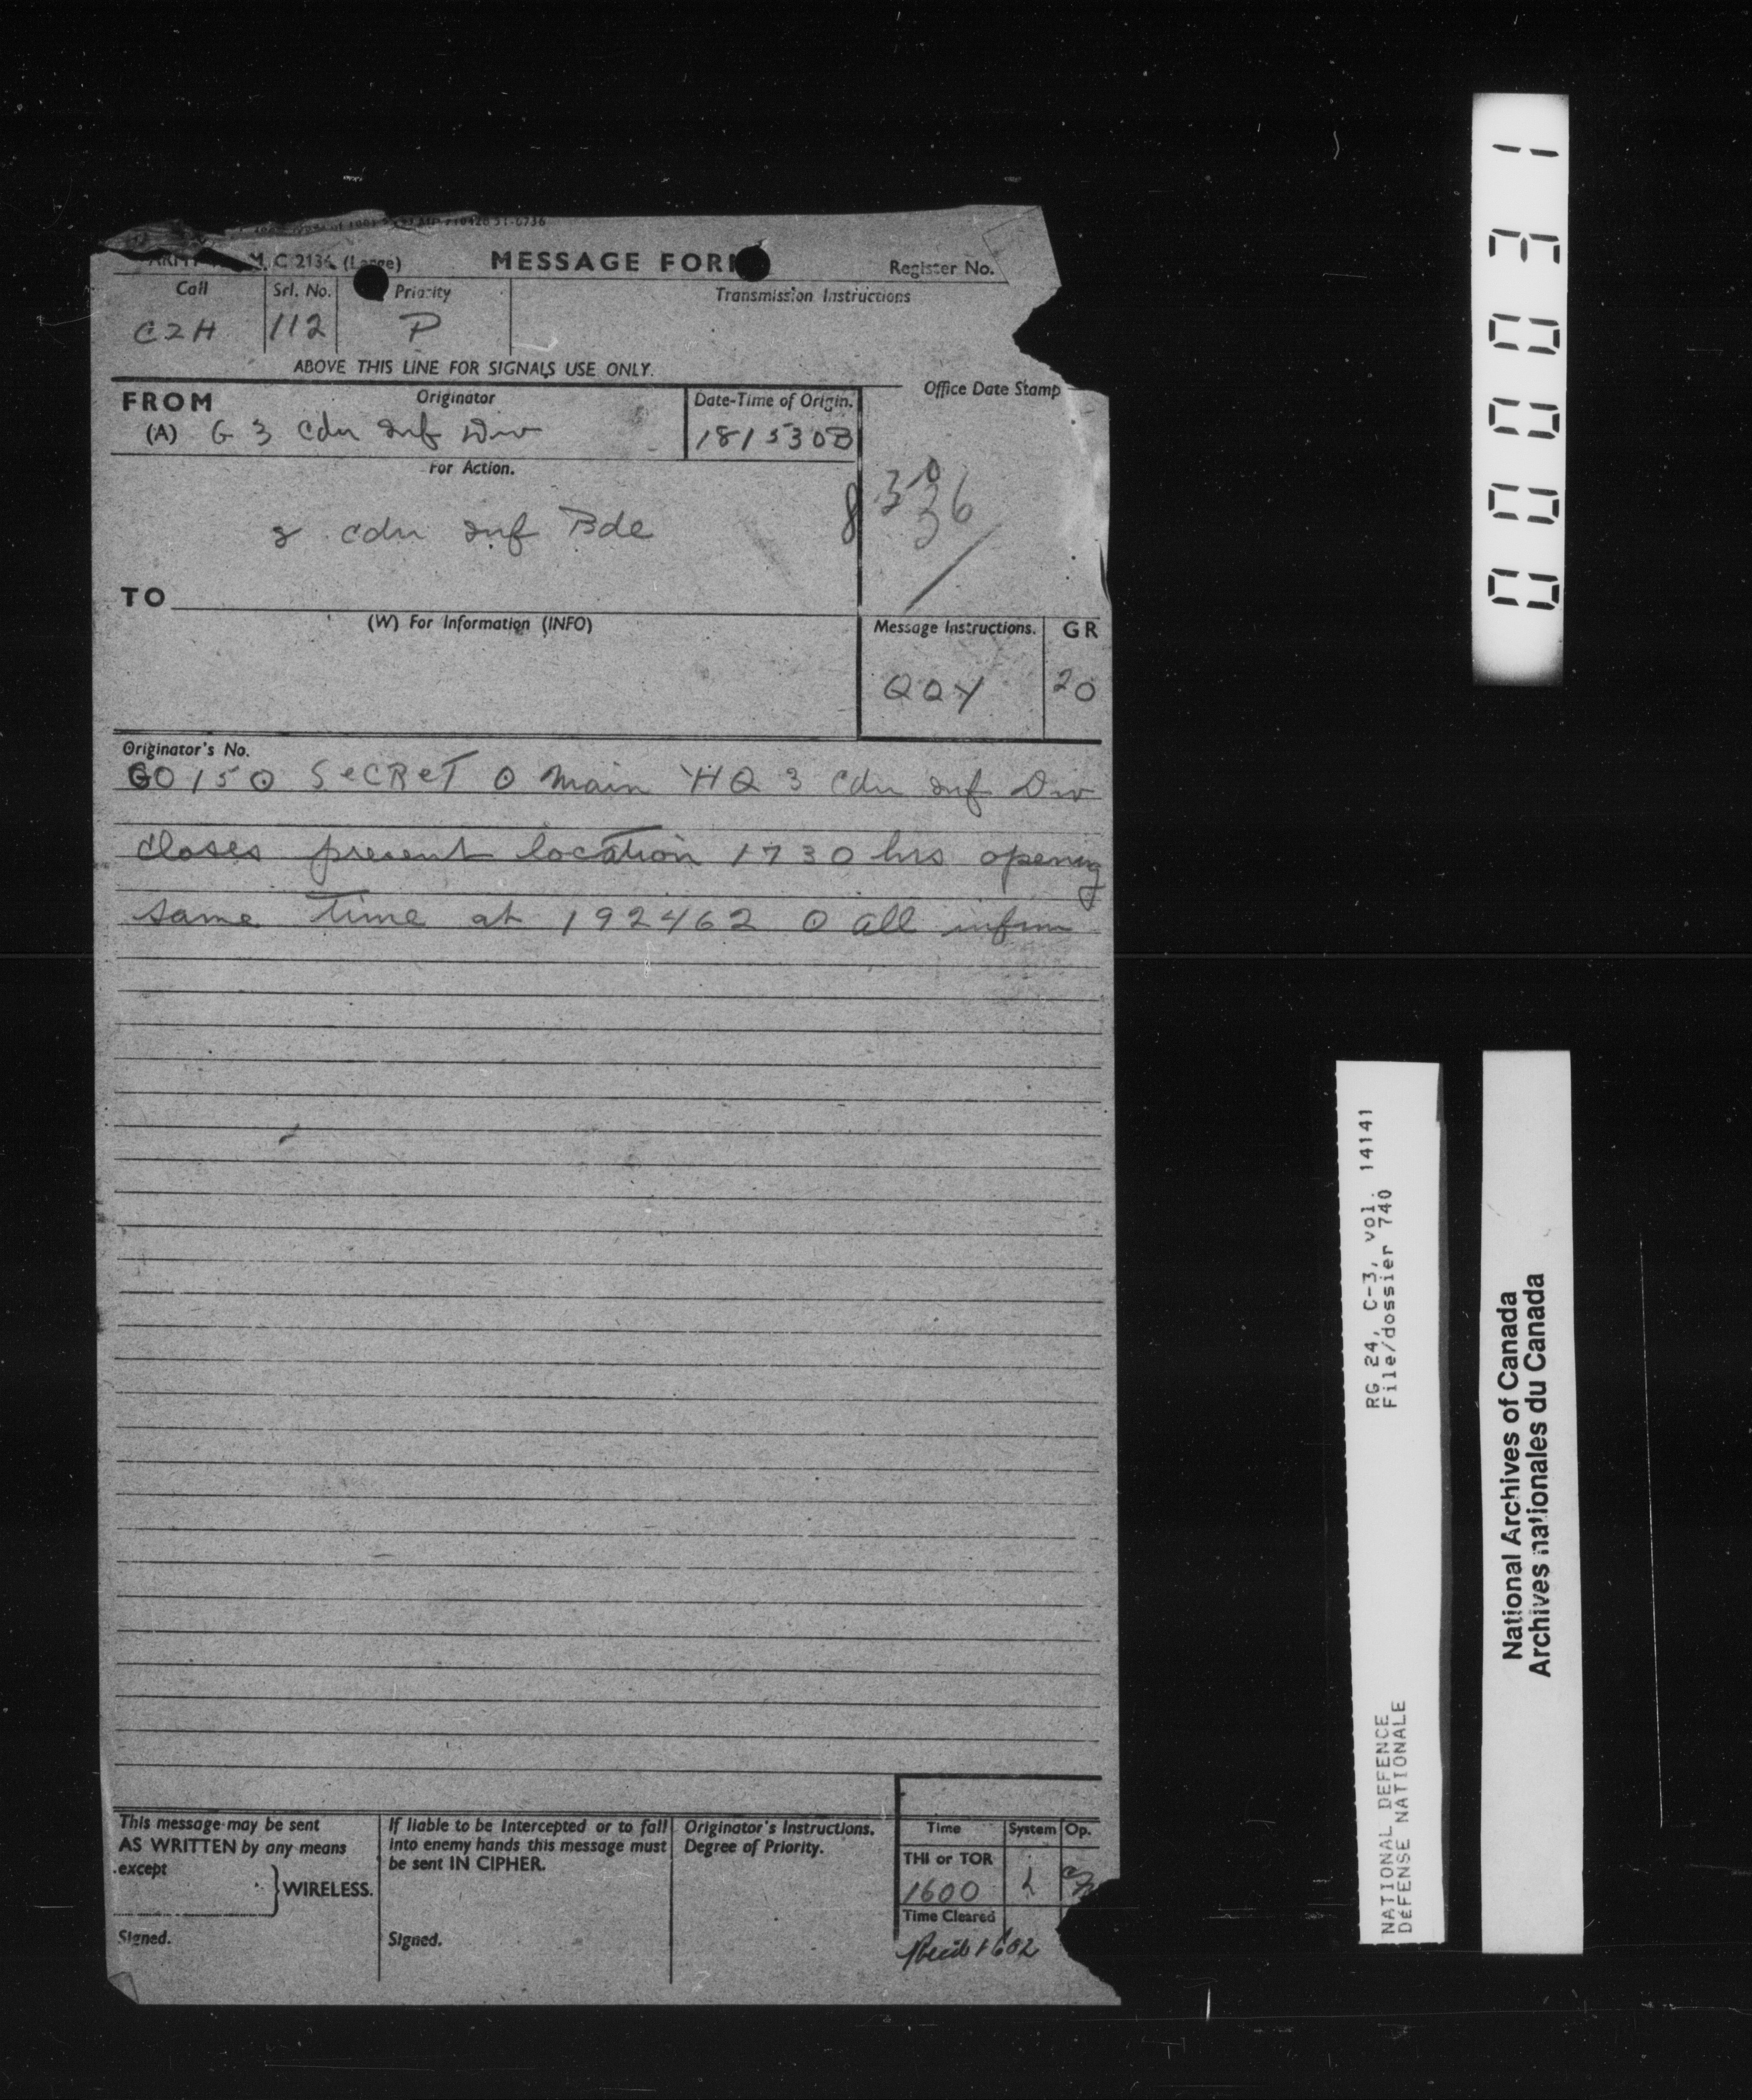 M. C 2136 (Large)
MESSAGE FORM
Register No.
Call
Srl. No.
Priority
Transmission Instructions
C2H
112
P
ABOVE THIS LINE FOR SIGNALS USE ONLY.
FROM
Originator
Date-Time of Origin.
Office Date Stamp
(A) G 3 Cdn Inf Div
181530B
For Action.
8 cdn inf Bde
TO
(W) For Information (INFO)
Message Instructions.
GR
QQY
20
Originator's No.
GO150 SeCReT O Main HQ 3 Cdn inf Div
closes present location 1730 hrs opening
same time at 192462 O all infm
This message may be sent
AS WRITTEN by any means
except
WIRELESS.
Signed.
If liable to be intercepted or to fall
into enemy hands this message must
be sent IN CIPHER.
Signed.
Originator's Instructions.
Degree of Priority.
Time
System
Op.
THI or TOR
1600
Time Cleared
1602
000031
RG 24, C-3, vol. 14141
File/dossier 740
NATIONAL DEFENCE
DÉFENSE NATIONALE
National Archives of Canada
Archives nationales du Canada